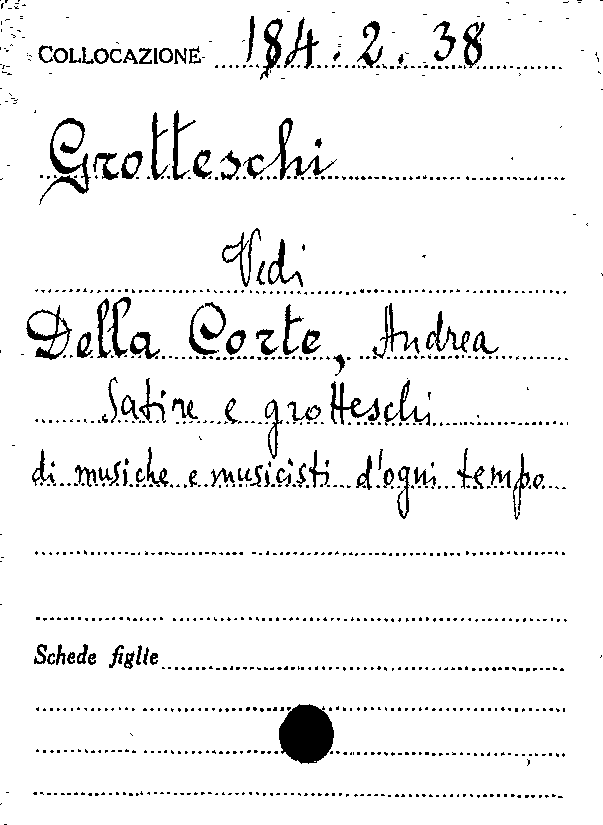 COLLOCAZIONE 184.2.38
Grotteschi
Vedi
Della Corte, Andrea
Satire e grotteschi
di musiche e musicisti d'ogni tempo
Schede figlie